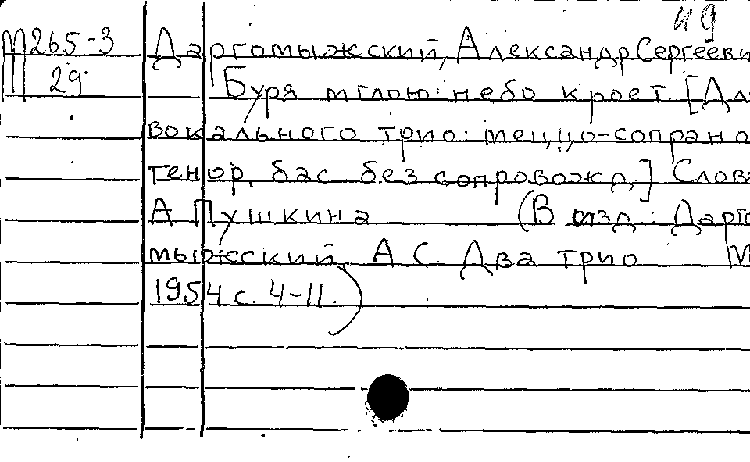 49
М265-3 Даргомыжский, Александр Сергееви
29 Буря мглою небо кроет. [Дл
вокального трио: меццо-сопрано
тенор, бас без сопровожд.] Слова
А Пушкина (В изд.: Дарго
мыжский, А. С. Два трио М
1954 с. 4-11.)